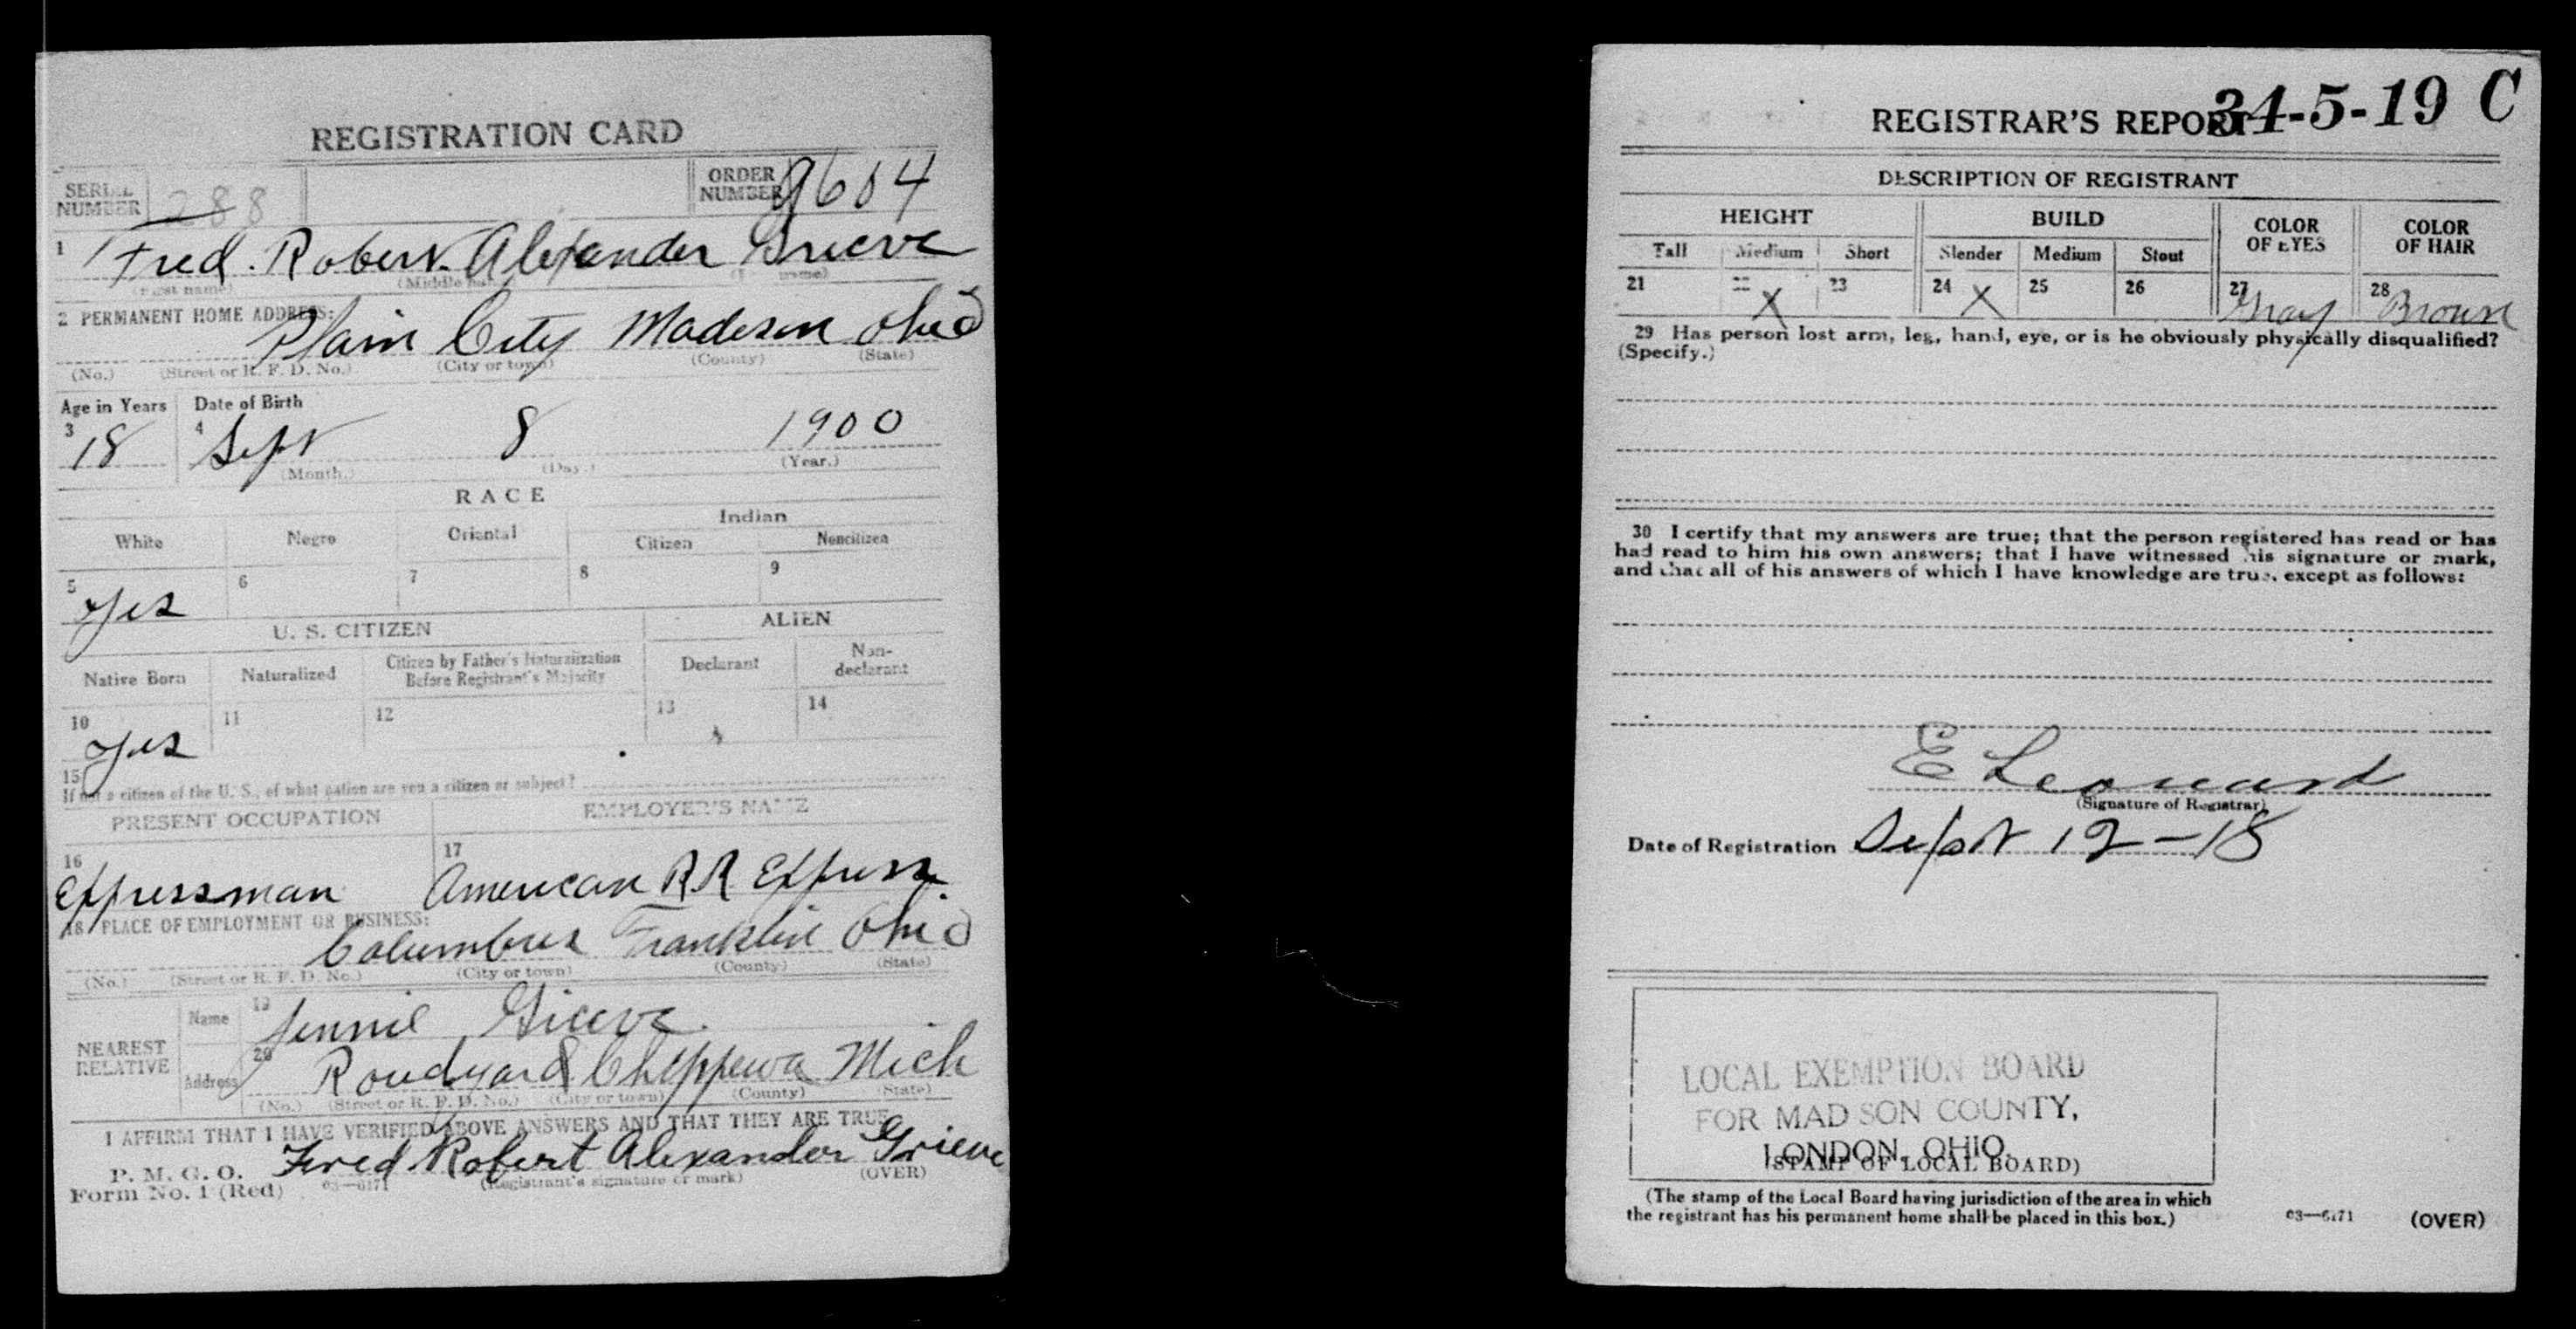 REGISTRATION CARD
SERIAL NUMBER 288 ORDER NUMBER 9604
1 Fred. Robert. Alexander Grieve
(First name) (Middle name) (Last name)
2 PERMANENT HOME ADDRESS:
Plain City Madison Ohio
(No.) (Street or R. F. D. No.) (City or town) (County) (State)
Age in Years Date of Birth
3 18 4 Sept 8 1900
(Month.) (Day.) (Year.)
RACE
White Negro Oriental Indian
Citizen Noncitizen
5 yes 6 7 8 9
U. S. CITIZEN ALIEN
Native Born Naturalized Citizen by Father's Naturalization Before Registrant's Majority Declarant Non-declarant
10 yes 11 12 13 14
15 If not a citizen of the U. S., of what nation are you a citizen or subject?
PRESENT OCCUPATION EMPLOYER'S NAME
16 Expressman 17 American RR Express
18 PLACE OF EMPLOYMENT OR BUSINESS:
Columbus Franklin Ohio
(No.) (Street or R. F. D. No.) (City or town) (County) (State)
NEAREST RELATIVE
Name 19 Jennie Grieve
Address 20 Roudyard Chippewa Mich
(No.) (Street or R. F. D. No.) (City or town) (County) (State)
I AFFIRM THAT I HAVE VERIFIED ABOVE ANSWERS AND THAT THEY ARE TRUE
P. M. G. O.
Form No. 1 (Red) 03—6171 Fred Robert Alexander Grieve
(Registrant's signature or mark) (OVER)
REGISTRAR'S REPORT 34-5-19 C
DESCRIPTION OF REGISTRANT
HEIGHT BUILD COLOR OF EYES COLOR OF HAIR
Tall Medium Short Slender Medium Stout
21 22 X 23 24 X 25 26 27 Gray 28 Brown
29 Has person lost arm, leg, hand, eye, or is he obviously physically disqualified?
(Specify.)
30 I certify that my answers are true; that the person registered has read or has
had read to him his own answers; that I have witnessed his signature or mark,
and that all of his answers of which I have knowledge are true, except as follows:
E Leonard
(Signature of Registrar)
Date of Registration Sept 12-18
LOCAL EXEMPTION BOARD
FOR MADISON COUNTY,
LONDON, OHIO.
(STAMP OF LOCAL BOARD)
(The stamp of the Local Board having jurisdiction of the area in which
the registrant has his permanent home shall be placed in this box.)
03—6171 (OVER)